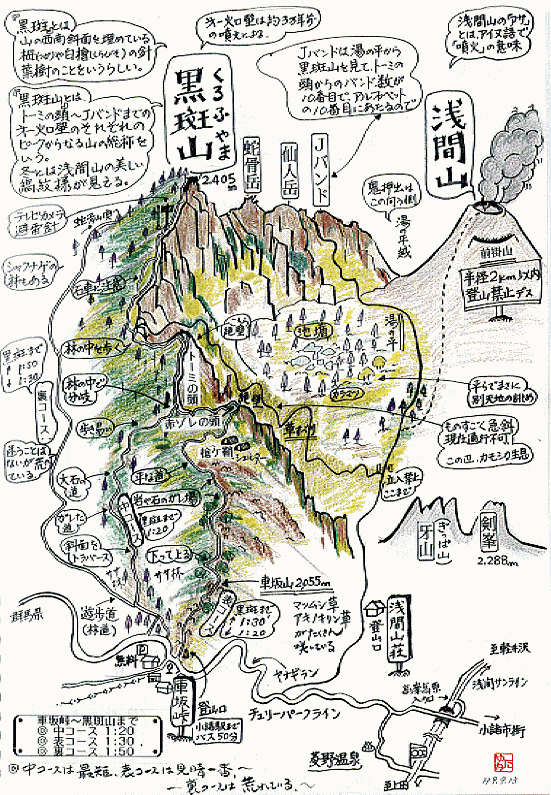 『黒斑』とは
山の西南斜面を埋めている
葉樹のことをいうらしい。
『黒斑山とは、
トーミの頭〜Jバンドまでの
オ一火口壁のそれぞれの
ピークからなる山の総称を
いう。
冬には浅間山の美しい
縞紋様が見える。
オ一火口壁は約3万年前
の噴火による。
くろふやま
黒斑山
2.405m
Jバンドは湯の平から
黒斑山を見て、トーミの
頭からのバンド数が
10番目で、アルファベット
の10番目にあたるので
浅間山の「アサ」
とは、アイヌ語で
「噴火」の意味
浅間山
蛇骨岳
仙人岳
Jバンド
鬼押出は
この向う側
前掛山
半径2km以内
登山禁止デス
テレビカメラ
避雷針
シャクナゲの
林もある
石車に注意
林の中を歩く
林の中で
分岐
黒斑まで
1:50
1:30
裏コース
歩き易い
迷うことは
ないが荒れ
ている。
大石の
道
ガレた
道
斜面を
トラバース
トーミの頭
赤ゾレの頭
槍ヶ鞘
平な道
岩や石のガレ場
中コース
黒斑まで
1:20
下って上る
車坂山 2,055m
表コース
黒斑まで
1:30
1:20
湯の平
平らでまさに
別天地の眺め
ものすごく急斜
現在通行不可
この辺、カモシカ生息
立入禁止
ここまで
牙山
ぎっぱ山
剣ヶ峯
2.288m
マツムシ草
アキノキリン草
がたくさん
咲いている
浅間山荘
登山口
群馬県
遊歩道
(林道)
無料
P
車坂峠
登山口
小諸駅まで
バス50分
ヤナギラン
チェリーパークライン
至軽木沢
浅間サンライン
小諸市街
菱野温泉
至上田
車坂峠〜黒斑山まで
◎ 中コース 1:20
◎ 表コース 1:30
◎ 裏コース 1:50
◎中コースは最短、表コースは見晴一番、〜
〜裏コースは荒れている。〜